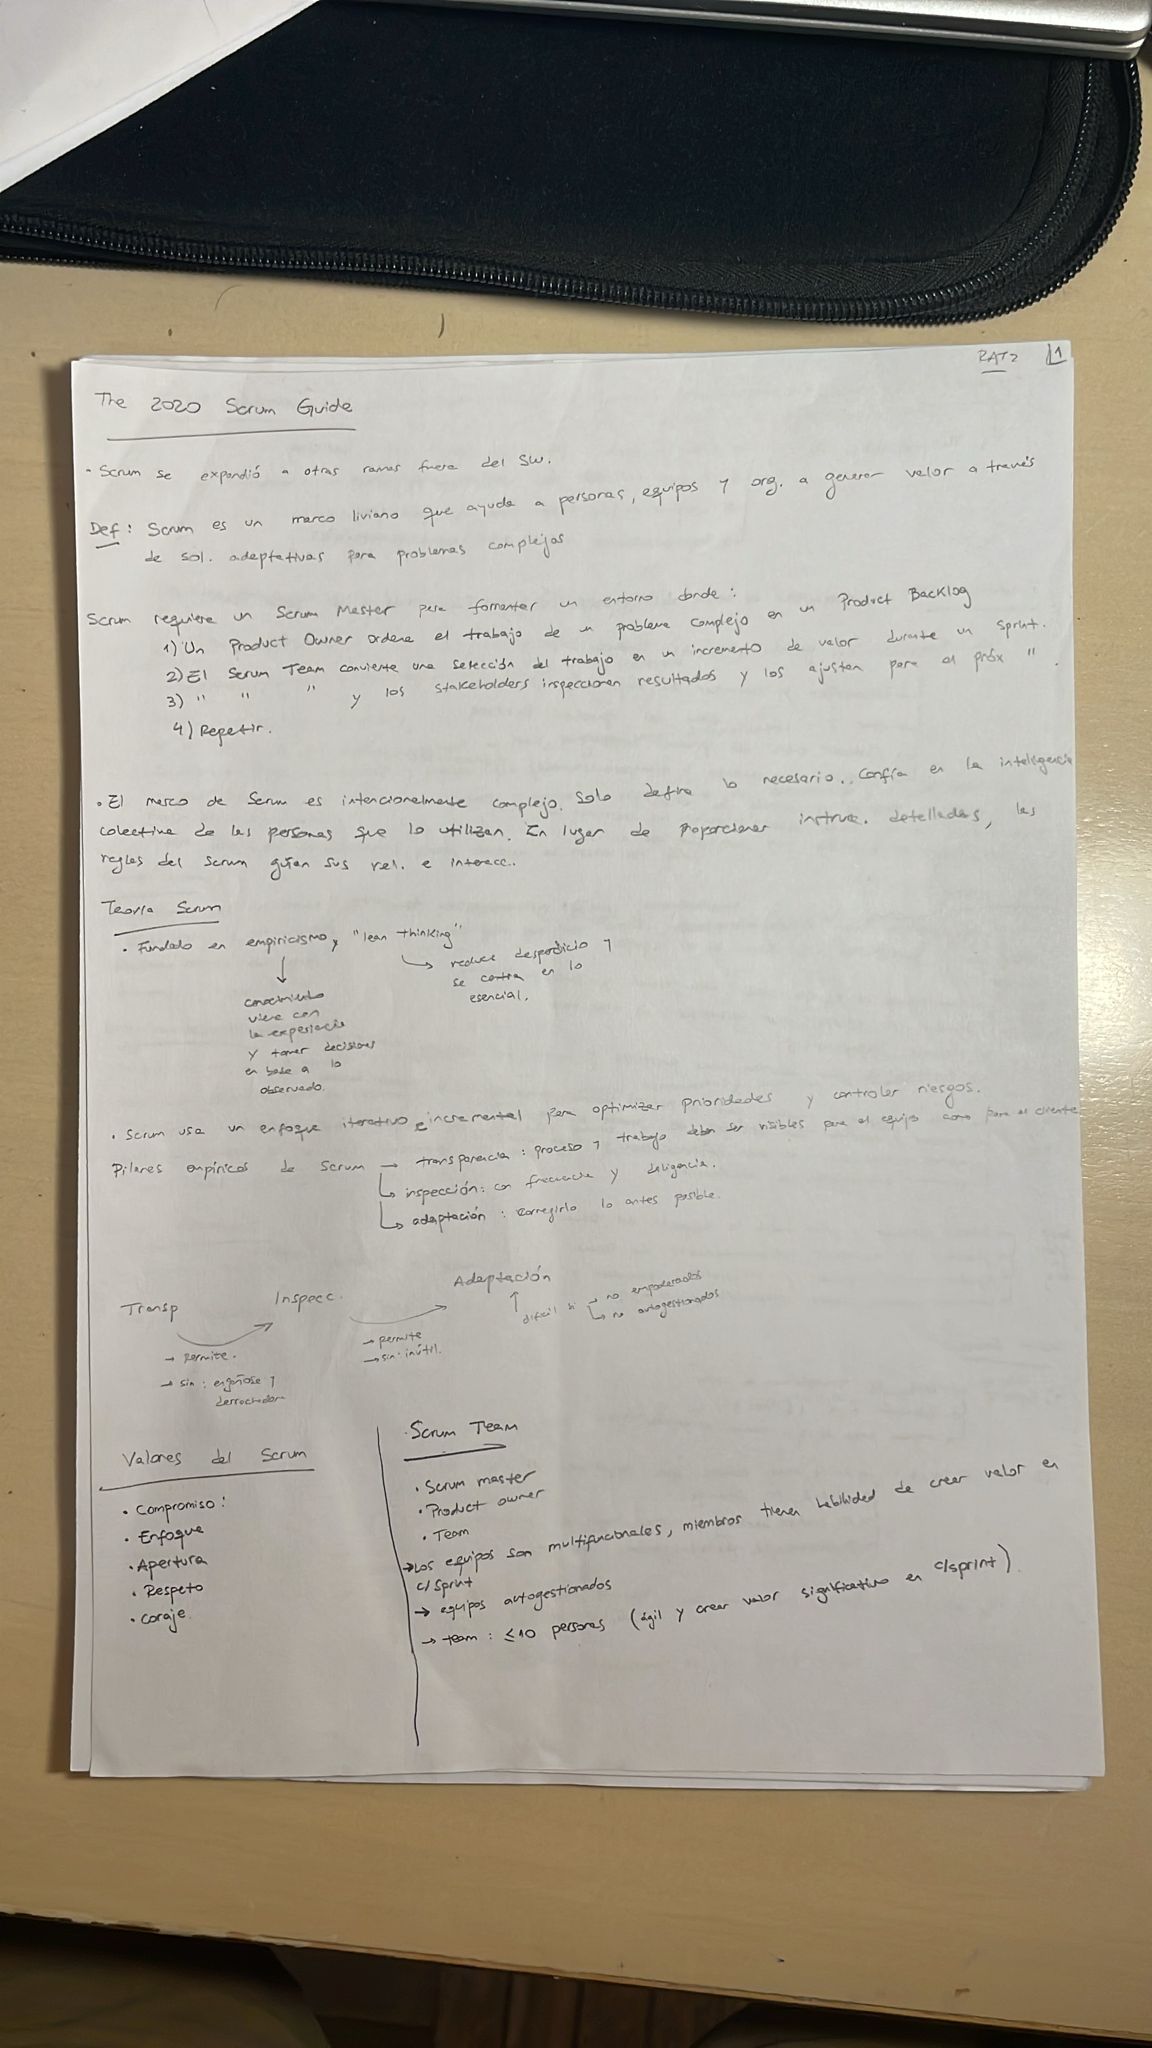 RAT2 1
The 2020 Scrum Guide
• Scrum se expandió a otras ramas fuera del SW.
Def: Scrum es un marco liviano que ayuda a personas, equipos y org. a generar valor a través
de sol. adaptativas para problemas complejos
Scrum requiere un Scrum Master para fomentar un entorno donde:
1) Un Product Owner ordena el trabajo de un problema complejo en un Product Backlog
2) El Scrum Team convierte una selección del trabajo en un incremento de valor durante un sprint.
3) " " " y los stakeholders inspeccionan resultados y los ajustan para el próx ".
4) Repetir.
• El marco de Scrum es intencionalmente complejo. Solo define lo necesario. Confía en la inteligencia
colectiva de las personas que lo utilizan. En lugar de proporcionar instruc. detalladas, las
reglas del Scrum guían sus rel. e interacc.
Teoría Scrum
• Fundado en empiricismo y "lean thinking"
→ reduce desperdicio y
se centra en lo
esencial.
↓
conocimiento
viene con
la experiencia
y tomar decisiones
en base a lo
observado.
• Scrum usa un enfoque iterativo e incremental para optimizar prioridades y controlar riesgos.
Pilares empíricos de Scrum → transparencia: proceso y trabajo deben ser visibles para el equipo como para el cliente
↳ inspección: con frecuencia y diligencia.
↳ adaptación: corregirlo lo antes posible.
Transp Inspecc. Adaptación
→ permite.
→ sin: engañose y
derrochador
→ permite
→ sin: inútil.
↑ difícil si → no empoderados
↳ no autogestionados
Valores del Scrum
• Compromiso:
• Enfoque
• Apertura
• Respeto
• Coraje.
• Scrum Team
• Scrum master
• Product owner
• Team
→ Los equipos son multifuncionales, miembros tienen habilidad de crear valor en
c/ sprint
→ equipos autogestionados
→ team: ≤10 personas (ágil y crear valor significativo en c/sprint)